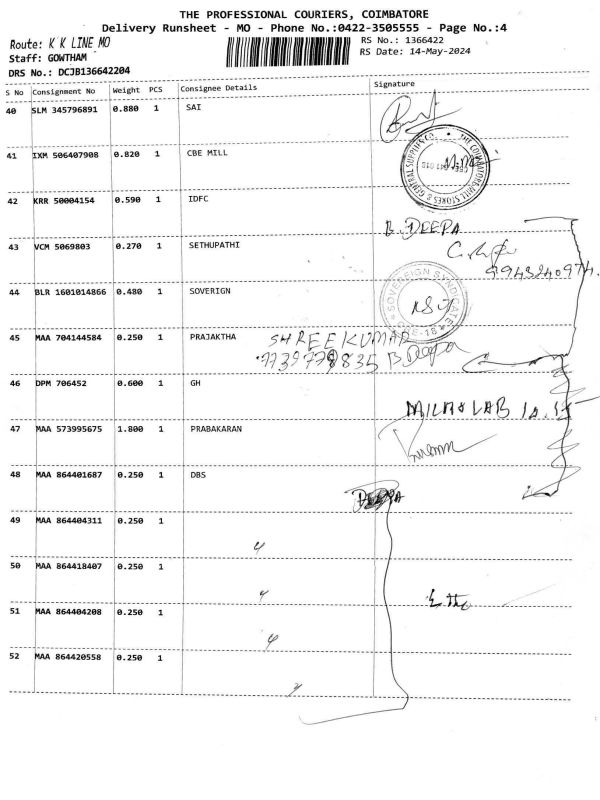 THE PROFESSIONAL COURIERS, COIMBATORE
Delivery Runsheet - MO - Phone No.:0422-3505555 - Page No.:4
Route: K K LINE MO
RS No.: 1366422
Staff: GOWTHAM
RS Date: 14-May-2024
DRS No.: DCJB136642204
S No Consignment No Weight PCS Consignee Details Signature
40 SLM 345796891 0.880 1 SAI
41 IXM 506407908 0.820 1 CBE MILL
THE COIMBATORE MILL STORES & GENERAL SUPPLIES CO.
42 KRR 50004154 0.590 1 IDFC
B. DEEPA
43 VCM 5069803 0.270 1 SETHUPATHI
44 BLR 1601014866 0.480 1 SOVERIGN
SOVEREIGN SYNDICATE
CBE-18
45 MAA 704144584 0.250 1 PRAJAKTHA
SHREE KUMAR
B Deepa
46 DPM 706452 0.600 1 GH
47 MAA 573995675 1.800 1 PRABAKARAN
48 MAA 864401687 0.250 1 DBS
DEEPA
49 MAA 864404311 0.250 1
50 MAA 864418407 0.250 1
51 MAA 864404208 0.250 1
52 MAA 864420558 0.250 1